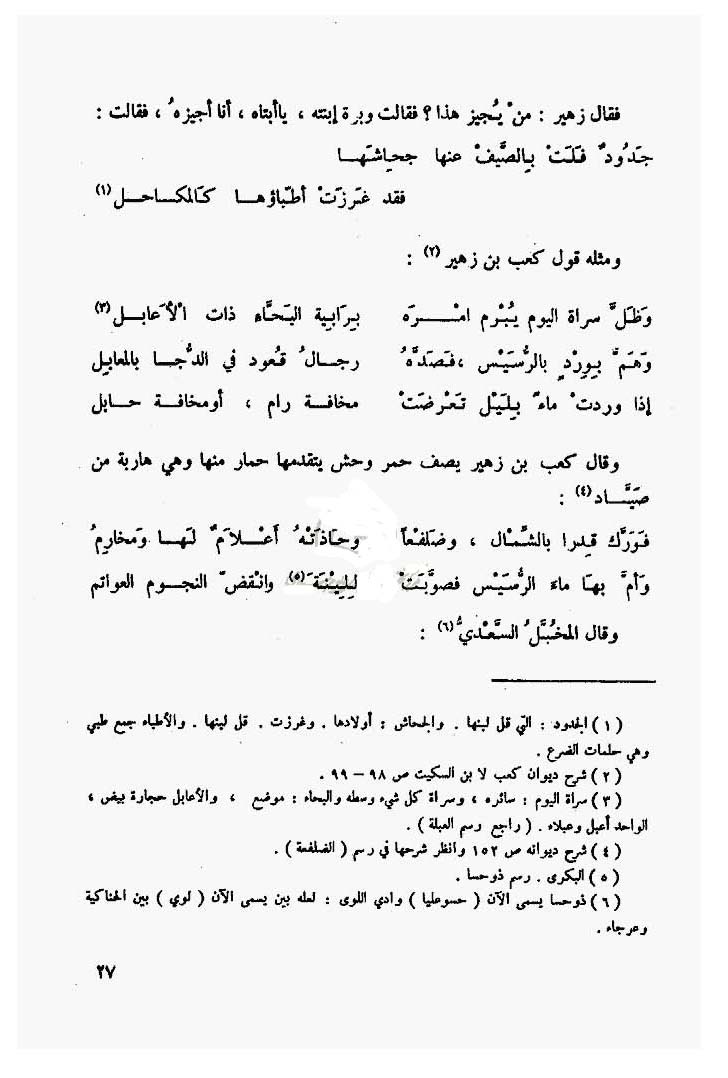 فقال زهير : منْ يُجيز هذا ؟ فقالت وبرة إبنته ، ياأبتاه ، أنا أجيزهُ ، فقالت :
جَدُودٌ فَلَتْ بِالصَّيفْ عنها جحاشها
فقد غَرزَتْ أطبّاؤها كالمكاحل (١)
ومثله قول كعب بن زهير (٢) :
وَظلَّ سراة اليوم يُبْرم امْره بِرَابية البَحَّاء ذات الْأَعابل (٣)
وَهَمَّ بِوِرْدٍ بالرُّسَيْس ، فصَدَّهُ رجالُ قُعود في الدُّجا بالمعابل
إذا وردتْ ماءً بِلَيْل تَعْرضَتْ مخافة رام ، أومخافة حابل
وقال كعب بن زهير يصف حمر وحش يتقدمها حمار منها وهي هاربة من
صَيَّاد (٤) :
فَوَرَّك قِدرا بالشَّمْال ، وضَلفعْاً وحَاذَتْهُ أعْلامٌ لها ومَخارِمُ
وَأمَّ بهَا ماءَ الرُّسَيْس فصوَّبَتْ لِلِيْنَةَ (٥) وانْقضّ النجوم العواتم
وقال المخبَّلُ السَّعْديُّ (٦) :
( ١ ) الجدود : التي قل لبنها . والجحاش : أولادها . وغرزت . قل لبنها . والأطباء جمع طبي
وهي حلمات الضرع .
( ٢ ) شرح ديوان كعب لا بن السكيت ص ٩٨ – ٩٩ .
( ٣ ) سراة اليوم : سائره ، وسراة كل شيء وسطه والبحاء : موضع ، والأعابل حجارة بيض ،
الواحد أعبل وعبلاء . ( راجع رسم العبلة ) .
( ٤ ) شرح ديوانه ص ١٥٢ وانظر شرحها في رسم ( الضلفعة ) .
( ٥ ) البكرى . رسم ذوحسا .
( ٦ ) ذوحسا يسمى الآن ( حسوعليا ) وادي اللوى : لعله بين يسمى الآن ( لوي ) بين الحناكية
وعرجاء .
٢٧